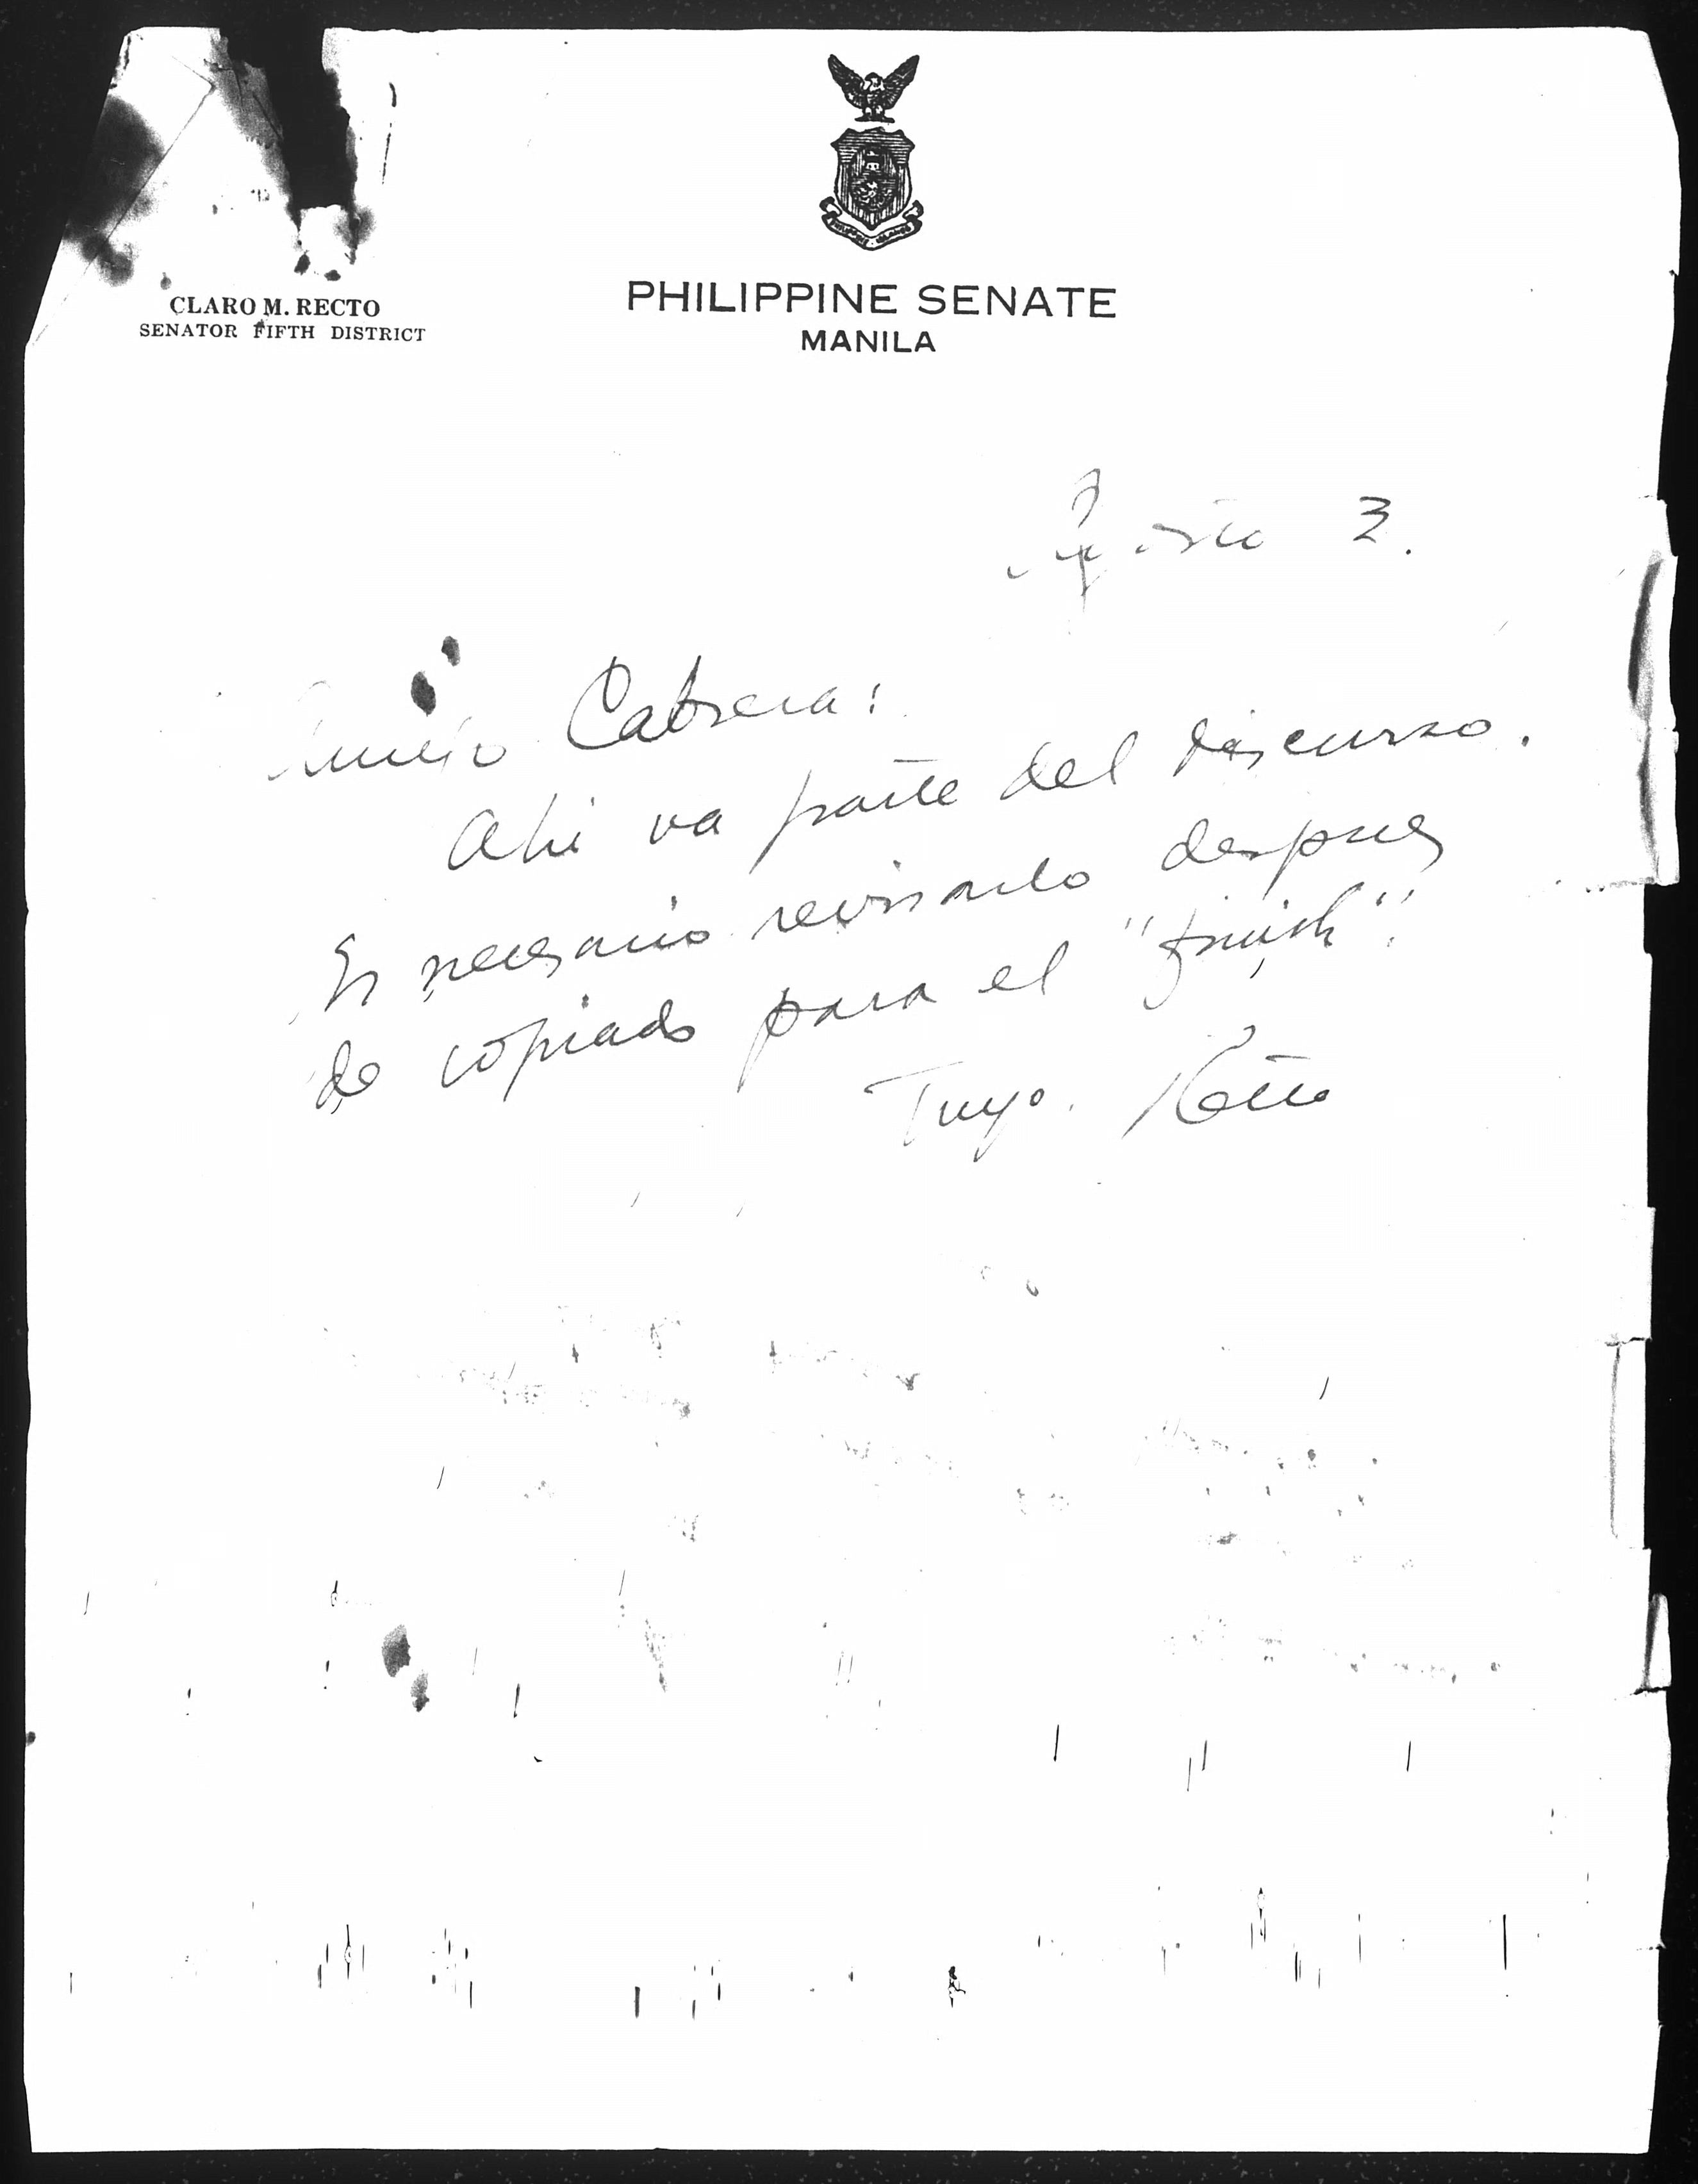 CLARO M. RECTO
SENATOR FIFTH DISTRICT
PHILIPPINE SENATE
MANILA
Agosto 3.
Amigo Cabrera:
Ahi va parte del discurso.
Es necesario revisarlo despues
de copiado para el "finish".
Tuyo. Recto